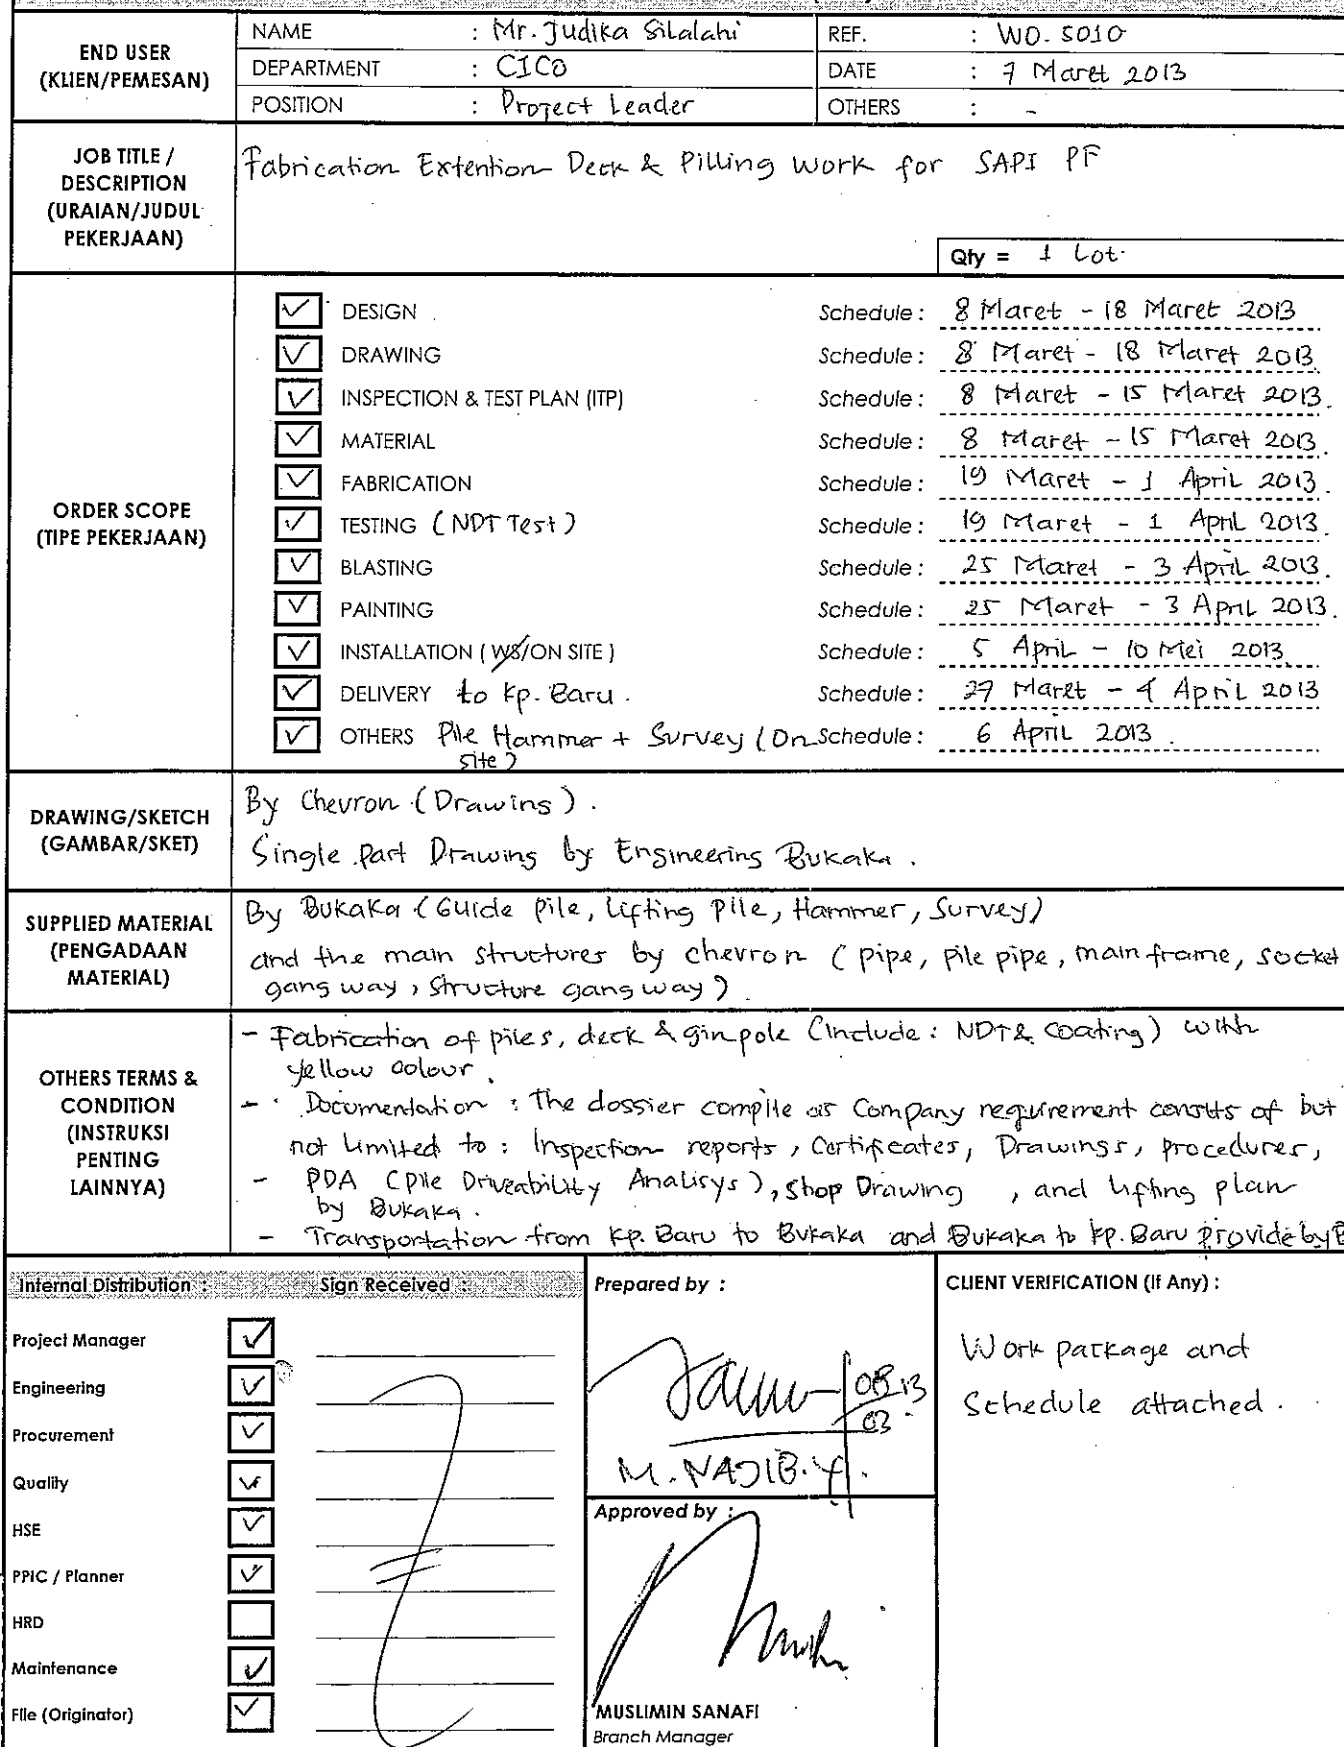 END USER
(KLIEN/PEMESAN)
NAME : Mr. Judika Silalahi
REF. : WO. 5010
DEPARTMENT : CICO
DATE : 7 Maret 2013
POSITION : Project Leader
OTHERS : -
JOB TITLE /
DESCRIPTION
(URAIAN/JUDUL
PEKERJAAN)
Fabrication Extention Deck & Pilling Work for SAPI PF
Qty = 1 Lot.
ORDER SCOPE
(TIPE PEKERJAAN)
DESIGN Schedule : 8 Maret - 18 Maret 2013
DRAWING Schedule : 8 Maret - 18 Maret 2013
INSPECTION & TEST PLAN (ITP) Schedule : 8 Maret - 15 Maret 2013.
MATERIAL Schedule : 8 Maret - 15 Maret 2013.
FABRICATION Schedule : 19 Maret - 1 April 2013.
TESTING (NDT Test) Schedule : 19 Maret - 1 April 2013.
BLASTING Schedule : 25 Maret - 3 April 2013.
PAINTING Schedule : 25 Maret - 3 April 2013.
INSTALLATION ( WS/ON SITE ) Schedule : 5 April - 10 Mei 2013
DELIVERY to Kp. Baru. Schedule : 27 Maret - 4 April 2013
OTHERS Pile Hammer + Survey (On Schedule : 6 April 2013.
Site)
DRAWING/SKETCH
(GAMBAR/SKET)
By Chevron (Drawings).
Single Part Drawing by Engineering Bukaka.
SUPPLIED MATERIAL
(PENGADAAN
MATERIAL)
By Bukaka (Guide pile, Lifting Pile, Hammer, Survey)
and the main structures by chevron (pipe, pile pipe, main frame, socket
gang way, structure gang way)
OTHERS TERMS &
CONDITION
(INSTRUKSI
PENTING
LAINNYA)
- Fabrication of piles, deck & ginpole (Include : NDT & Coating) with
yellow colour.
- Documentation : The dossier compile as Company requirement consits of but
not limited to : Inspection reports, Certificates, Drawings, procedures,
- PDA (Pile Driveability Analisys), Shop Drawing , and lifting plan
by Bukaka.
- Transportation from Kp. Baru to Bukaka and Bukaka to Kp. Baru provide by B
Internal Distribution : Sign Received :
Project Manager
Engineering
Procurement
Quality
HSE
PPIC / Planner
HRD
Maintenance
File (Originator)
Prepared by :
08 13
03
M. NAJIB. Y.
Approved by :
MUSLIMIN SANAFI
Branch Manager
CLIENT VERIFICATION (If Any) :
Work package and
Schedule attached.